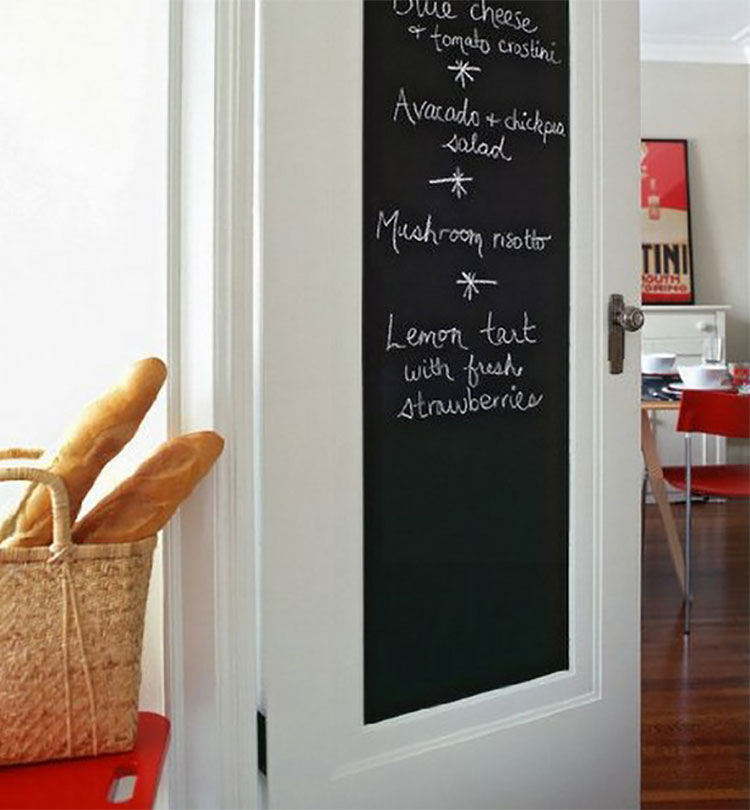 Blue cheese
& tomato crostini
Avacado + chickpea
salad
Mushroom risotto
Lemon tart
with fresh
strawberries
TINI
OUTH
TORINO